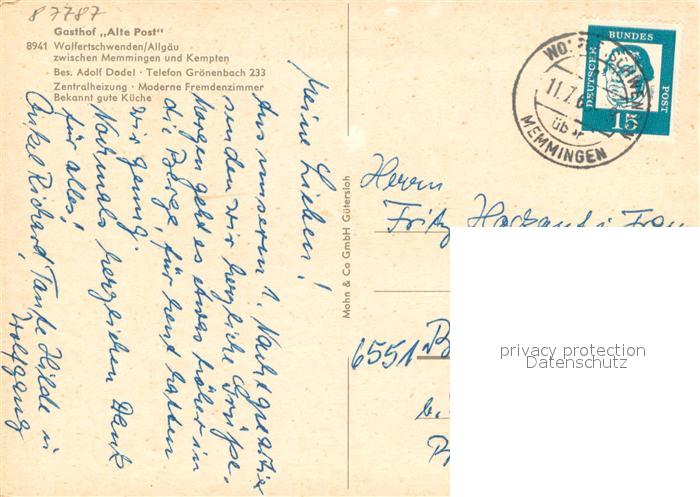 87787
Gasthof „Alte Post"
8941 Wolfertschwenden/Allgäu
zwischen Memmingen und Kempten
Bes. Adolf Dodel · Telefon Grönenbach 233
Zentralheizung · Moderne Fremdenzimmer
Bekannt gute Küche
Meine Lieben!
Aus unserem 1. Nachtquartier
senden wir herzliche Grüße.
Morgen geht es etwas höher in
die Berge, für heut hatten
wir genug.
Nochmals herzlichen Dank
für alles!
Onkel Richard, Tante Hilde u
Wolfgang
Mohn & Co GmbH Gütersloh
DEUTSCHE BUNDES POST
15
11.7.6
über
MEMMINGEN
Herrn
Fritz
6551
privacy protection
Datenschutz